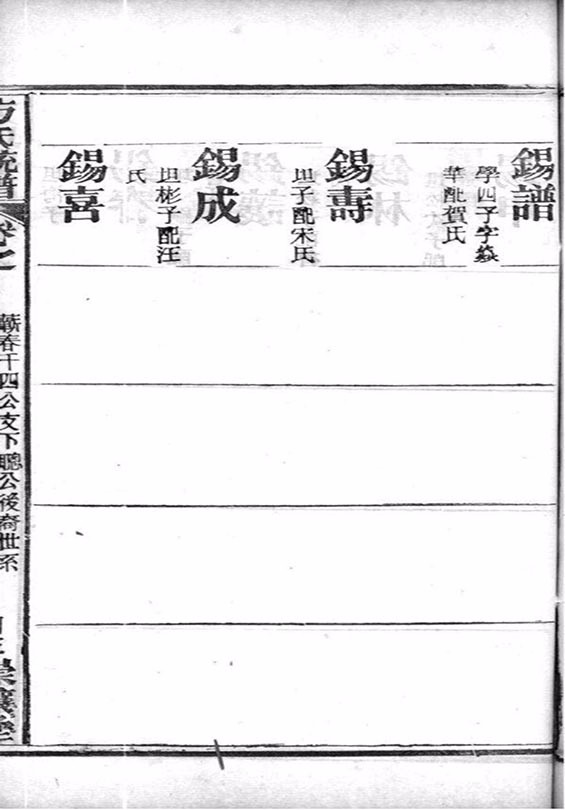 錫譜
學四子字焱
華配賀氏
錫壽
坦子配宋氏
錫成
坦彬子配汪
氏
錫喜
方氏統譜
卷之
蘄春千四公支下聰公後裔世系